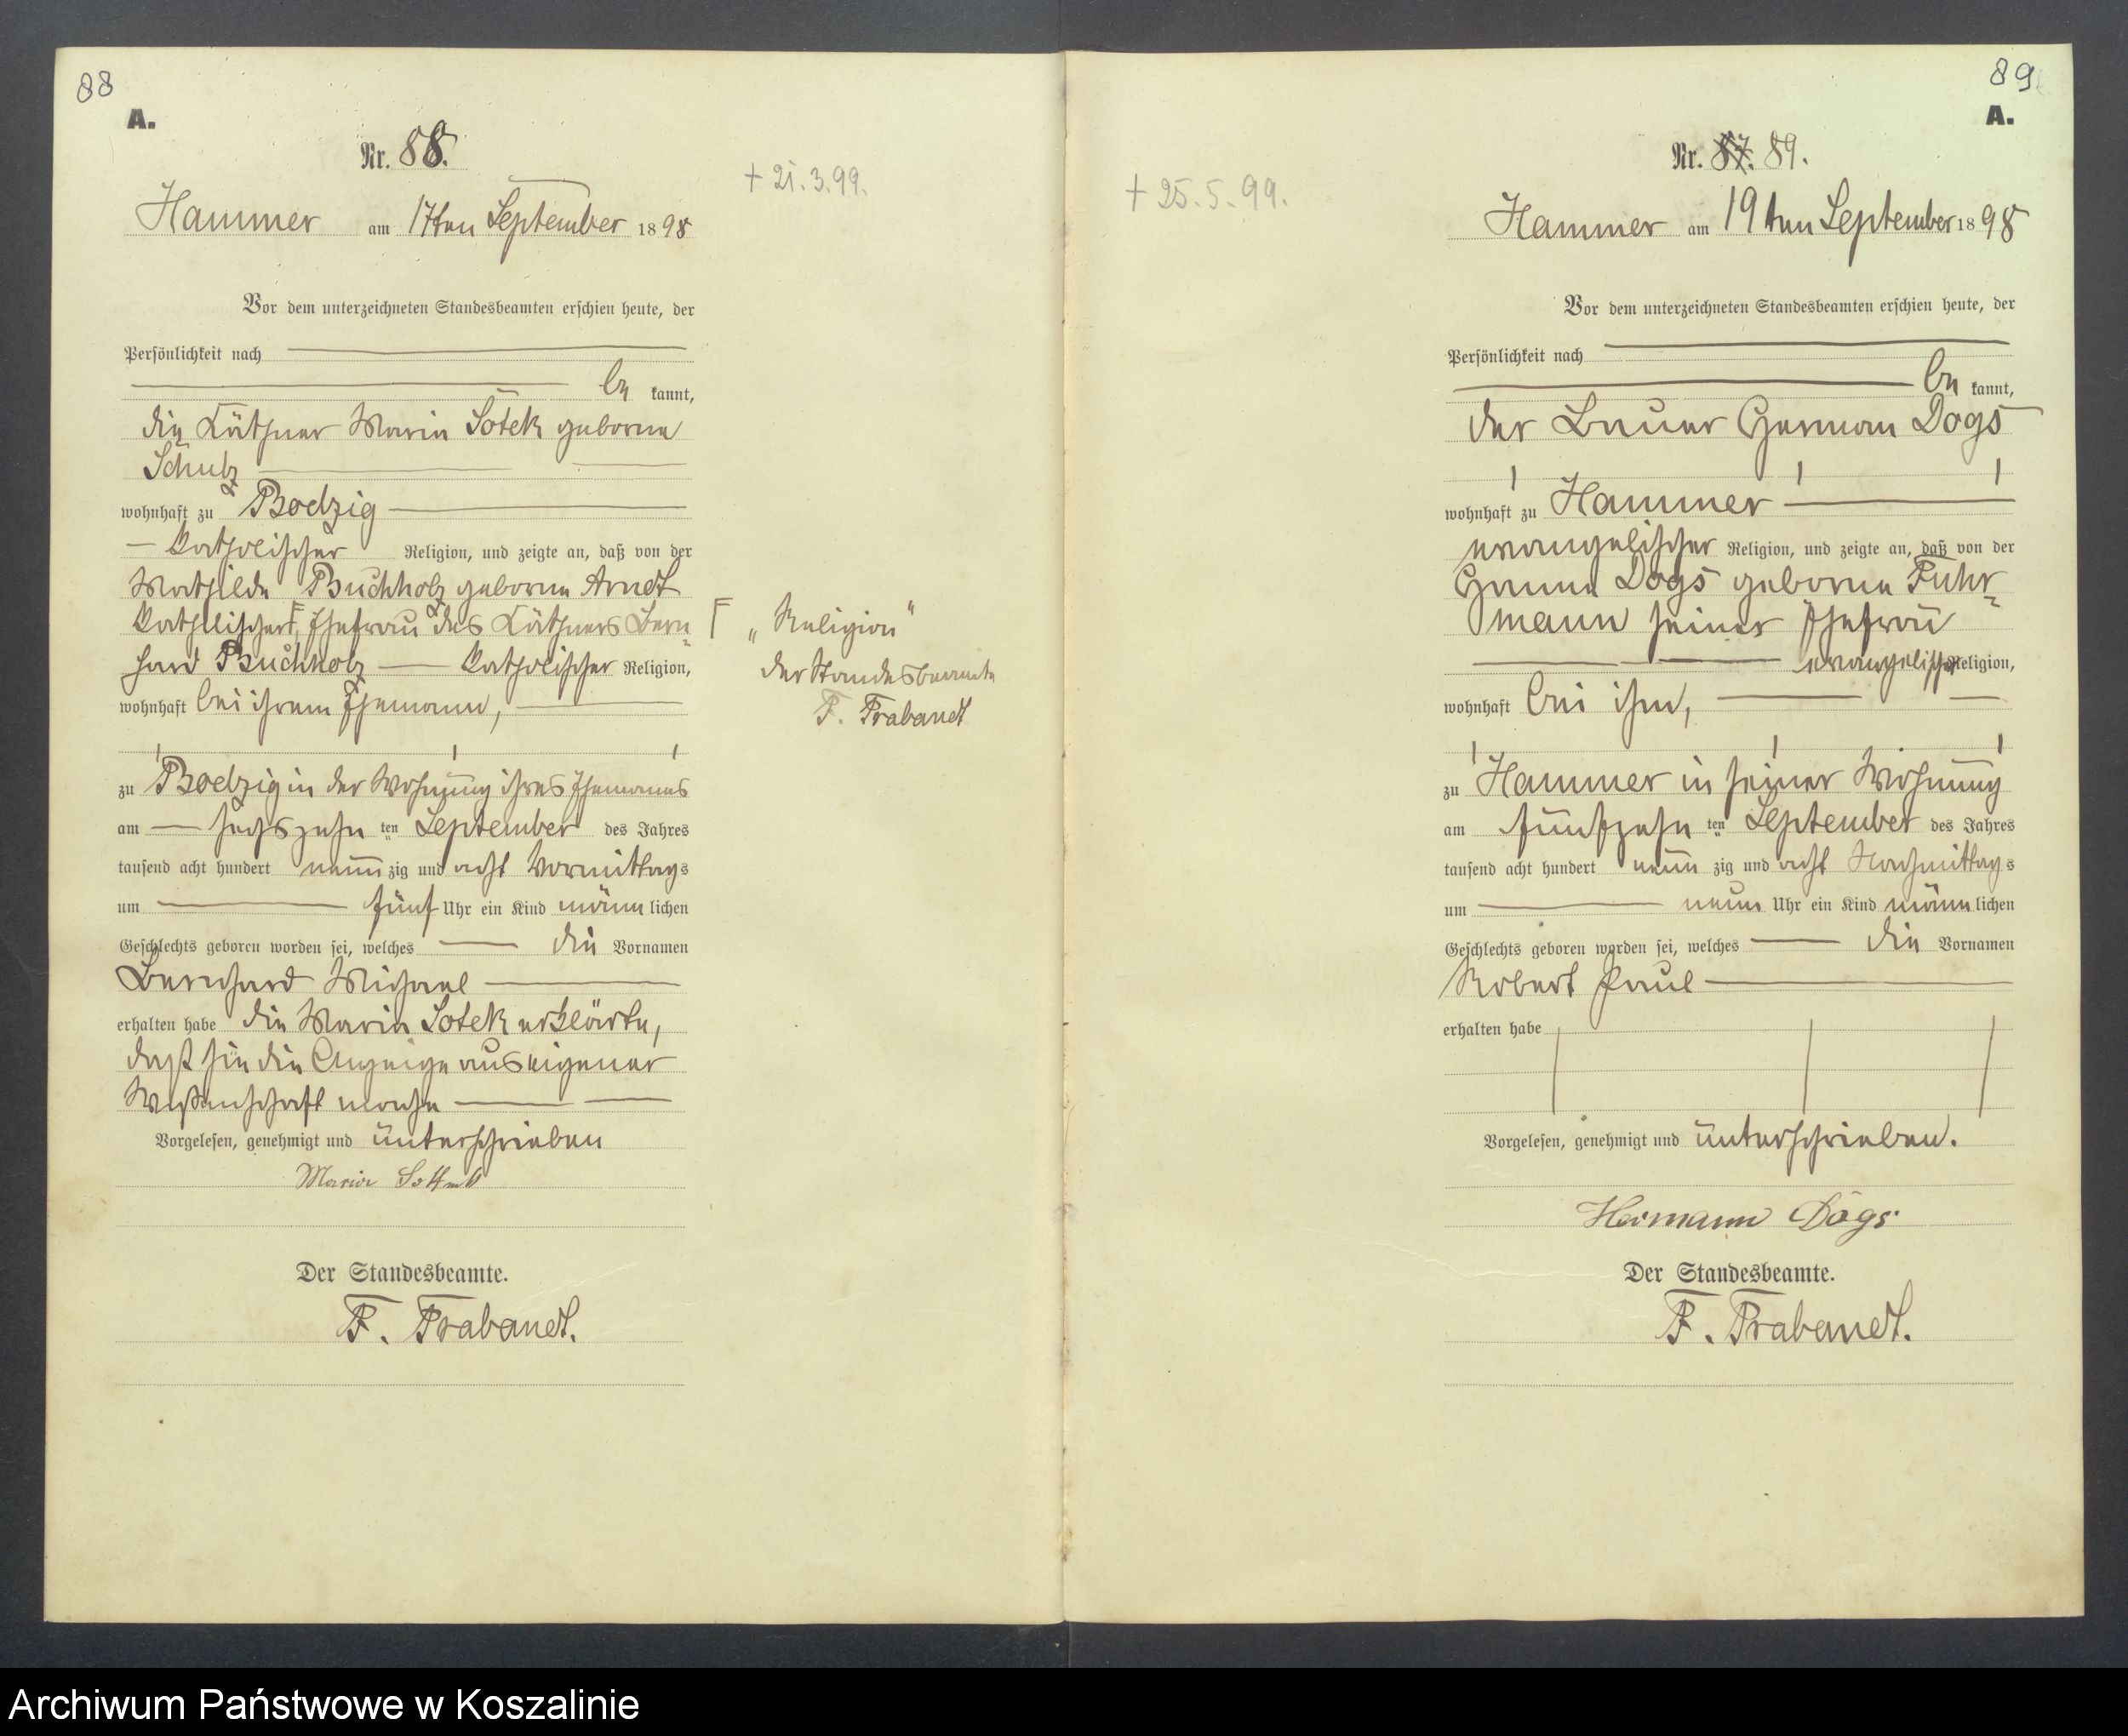 88
A.
Nr. 88.
Hammer am 17ten September 1898
Vor dem unterzeichneten Standesbeamten erschien heute, der
Persönlichkeit nach
be kannt,
die Käthner Maria Sotek geborne
Schulz
wohnhaft zu Bodzig
katholischer Religion, und zeigte an, daß von der
Mathilde Buchholz geborne Arndt
katholischer F, Ehefrau des Käthners Bern
hard Buchholz katholischer Religion,
wohnhaft bei ihrem Ehemann,
zu Bodzig in der Wohnung ihres Ehemanns
am sechszehn ten September des Jahres
tausend acht hundert neun zig und acht Vormittags
um fünf Uhr ein Kind männ lichen
Geschlechts geboren worden sei, welches die Vornamen
Bernhard Michael
erhalten habe die Maria Sotek erklärte,
daß sie die Anzeige aus eigener
Wißenschaft mache
Vorgelesen, genehmigt und unterschrieben
Maria
Der Standesbeamte.
F. Prabandt.
+ 21.3.99.
F „Religion"
der Standesbeamte
F. Prabandt
89
A.
Nr. 87. 89.
+ 25.5.99.
Hammer am 19ten September 1898
Vor dem unterzeichneten Standesbeamten erschien heute, der
Persönlichkeit nach
be kannt,
der Bauer Herman Dogs
wohnhaft zu Hammer
evangelischer Religion, und zeigte an, daß von der
Hanna Dogs geborne Fuhr
mann seiner Ehefrau
evangelischer Religion,
wohnhaft bei ihm,
zu Hammer in seiner Wohnung
am fünfzehn ten September des Jahres
tausend acht hundert neun zig und acht Nachmittags
um neun Uhr ein Kind männ lichen
Geschlechts geboren worden sei, welches die Vornamen
Robert Paul
erhalten habe
Vorgelesen, genehmigt und unterschrieben.
Hermann Dogs
Der Standesbeamte.
F. Prabandt.
Archiwum Państwowe w Koszalinie